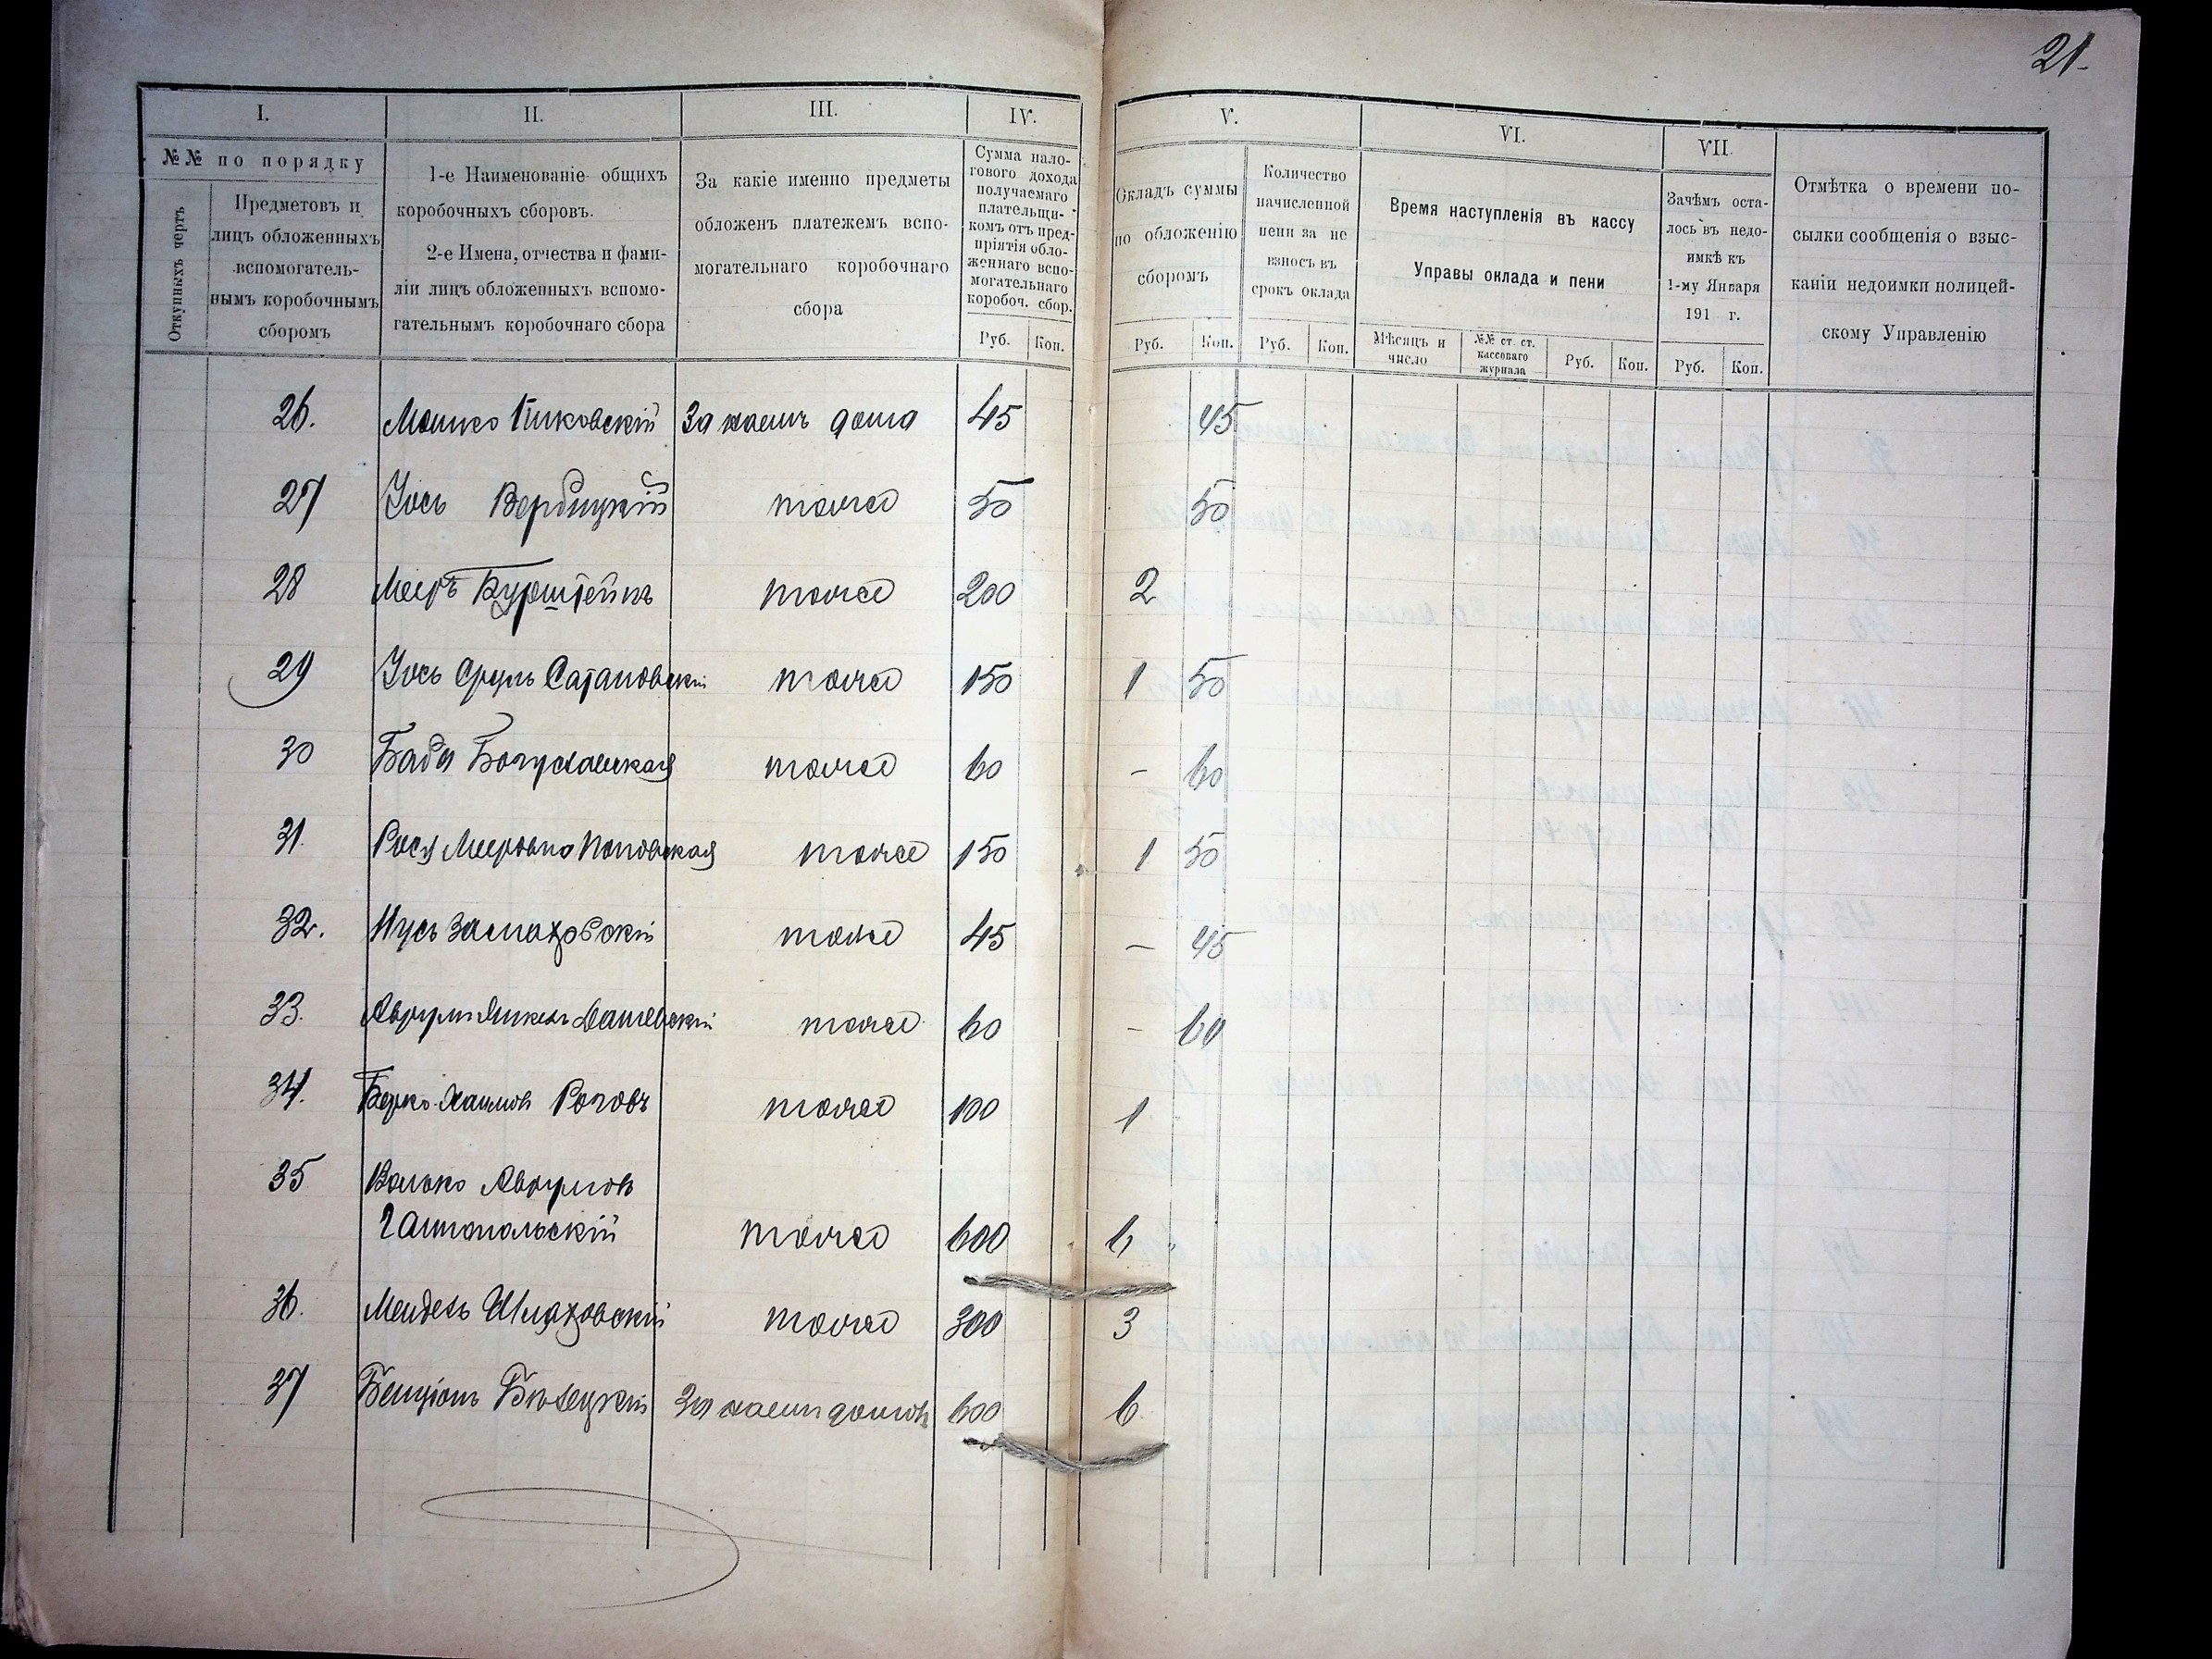 21.
I. II. III. IV. V. VI. VII.
№№ по порядку
Откупныхъ чертъ
Предметовъ и
лицъ обложенныхъ
вспомогатель-
нымъ коробочнымъ
сборомъ
1-е Наименованіе общихъ
коробочныхъ сборовъ.
2-е Имена, отчества и фами-
ліи лицъ обложенныхъ вспомо-
гательнымъ коробочнаго сбора
За какіе именно предметы
обложенъ платежемъ вспо-
могательнаго коробочнаго
сбора
Сумма нало-
гового дохода
получаемаго
плательщи-
комъ отъ пред-
пріятія обло-
женнаго вспо-
могательнаго
коробоч. сбор.
Руб. Коп.
Окладъ суммы
по обложенію
сборомъ
Руб. Коп.
Количество
начисленной
пени за не
взносъ въ
срокъ оклада
Руб. Коп.
Время наступленія въ кассу
Управы оклада и пени
Мѣсяцъ и
число
№№ ст. ст.
кассоваго
журнала
Руб. Коп.
Зачѣмъ оста-
лось въ недо-
имкѣ къ
1-му Января
191 г.
Руб. Коп.
Отмѣтка о времени по-
сылки сообщенія о взыс-
каніи недоимки полицей-
скому Управленію
26. Мошко Пиковскій За наемъ дома 45 45
27 Іось Вербицкій тоже 50 50
28 Мееръ Бурштейнъ тоже 200 2
29 Іось Сруль Сатановскій тоже 150 1 50
30 Баба Богуславская тоже 60 – 60
31. Рося Мееровна Поповская тоже 150 1 50
32. Нусь Замаховскій тоже 45 – 45
33. Аврумъ Дашевскій тоже 60 – 60
34. Берко Хаимовъ Роговъ тоже 100 1
35 Волько Аврумовъ
Гайтопольскій тоже 600 6
36. Мендель Шляховскій тоже 300 3
37 Бенціонъ Бѣлецкій За наемъ домовъ 600 6